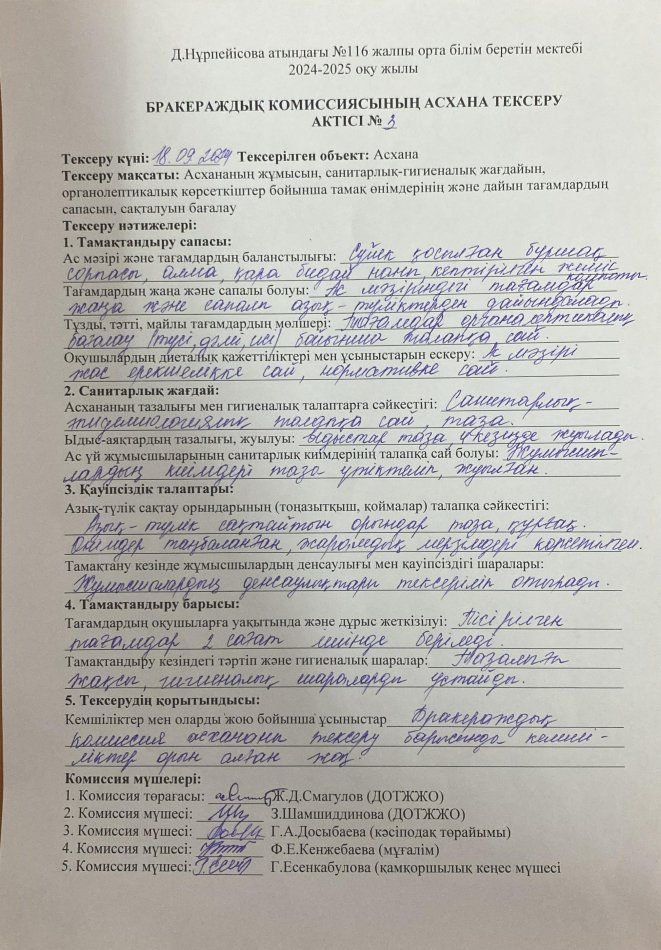 Д.Нұрпейісова атындағы №116 жалпы орта білім беретін мектебі
2024-2025 оқу жылы
БРАКЕРАЖДЫҚ КОМИССИЯСЫНЫҢ АСХАНА ТЕКСЕРУ
АКТІСІ № 3
Тексеру күні: 18.09.2024 Тексерілген объект: Асхана
Тексеру мақсаты: Асхананың жұмысын, санитарлық-гигиеналық жағдайын,
органолептикалық көрсеткіштер бойынша тамақ өнімдерінің және дайын тағамдардың
сапасын, сақталуын бағалау
Тексеру нәтижелері:
1. Тамақтандыру сапасы:
Ас мәзірі және тағамдардың баланстылығы: Сүйек қосылған бұршақ
сорпасы, алма, қара бидай наны, кептірілген жеміс компоты.
Тағамдардың жаңа және сапалы болуы: Ас мәзіріндегі тағамдар
жаңа және сапалы азық-түліктерден дайындалады.
Тұзды, тәтті, майлы тағамдардың мөлшері: Тағамдар органолептикалық
бағалау (түсі, дәмі, иісі) бойынша талапқа сай.
Оқушылардың диеталық қажеттіліктері мен ұсыныстарын ескеру: Ас мәзірі
жас ерекшелікке сай, нормативке сай.
2. Санитарлық жағдай:
Асхананың тазалығы мен гигиеналық талаптарға сәйкестігі: Санитарлық-
эпидемиологиялық талапқа сай, таза.
Ыдыс-аяқтардың тазалығы, жуылуы: ыдыстар таза, у кезінде жуылады.
Ас үй жұмысшыларының санитарлық киімдерінің талапқа сай болуы: Жұмысшы-
лардың киімдері таза үтіктеліп, жуылған.
3. Қауіпсіздік талаптары:
Азық-түлік сақтау орындарының (тоңазытқыш, қоймалар) талапқа сәйкестігі:
Азық-түлік сақтайтын орындар таза, құрғақ.
Өнімдер таңбаланған, жарамдық мерзімдері көрсетілген.
Тамақтану кезінде жұмысшылардың денсаулығы мен қауіпсіздігі шаралары:
Жұмысшылардың денсаулықтары тексеріліп отырады.
4. Тамақтандыру барысы:
Тағамдардың оқушыларға уақытында және дұрыс жеткізілуі: Пісірілген
тағамдар 2 сағат ішінде беріледі.
Тамақтандыру кезіндегі тәртіп және гигиеналық шаралар: Тазалығы
жақсы, гигиеналық шараларды ұстайды.
5. Тексерудің қорытындысы:
Кемшіліктер мен оларды жою бойынша ұсыныстар Бракераждық
комиссия асхананы тексеру барысында кемші-
ліктер орын алған жоқ.
Комиссия мүшелері:
1. Комиссия төрағасы: Ж.Д.Смагулов (ДОТЖЖО)
2. Комиссия мүшесі: З.Шамшиддинова (ДОТЖЖО)
3. Комиссия мүшесі: Г.А.Досыбаева (кәсіподақ төрайымы)
4. Комиссия мүшесі: Ф.Е.Кенжебаева (мұғалім)
5. Комиссия мүшесі: Г.Есенкабулова (қамқоршылық кеңес мүшесі